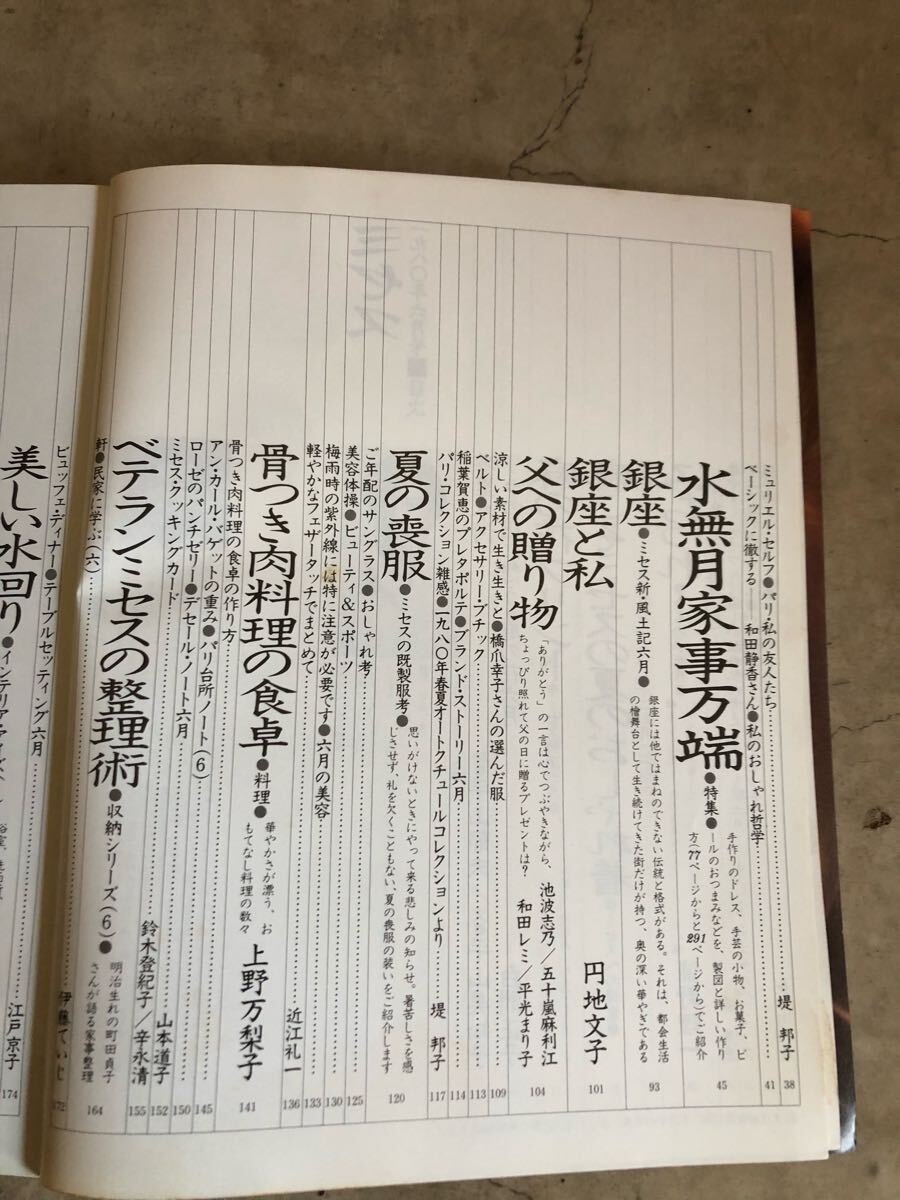 ミュリエル・セルフ●パリ・私の友人たち 堤 邦子 38
ベーシックに徹する――和田静香さん●私のおしゃれ哲学 41
水無月家事万端●特集●
手作りのドレス、手芸の小物、お菓子、ビ
ールのおつまみなどを、製図と詳しい作り
方(77ページからと291ページから)でご紹介 45
銀座●ミセス新・風土記六月●
銀座には他ではまねのできない伝統と格式がある。それは、都会生活
の檜舞台として生き続けてきた街だけが持つ、奥の深い華やぎである 93
銀座と私 円地文子 101
父への贈り物
「ありがとう」の一言は心でつぶやきながら、
ちょっぴり照れて父の日に贈るプレゼントは?
池波志乃/五十嵐麻利江
和田レミ/平光まり子 104
涼しい素材で生き生きと●橋爪幸子さんの選んだ服 109
ベルト●アクセサリー・ブチック 113
稲葉賀恵のプレタポルテ●ブランド・ストーリー六月 114
パリ・コレクション雑感●一九八〇年春夏オートクチュールコレクションより 堤 邦子 117
夏の喪服●ミセスの既製服考●
思いがけないときにやって来る悲しみの知らせ。暑苦しさを感
じさせず、礼を欠くこともない、夏の喪服の装いをご紹介します 120
ご年配のサングラス●おしゃれ考 125
美容体操●ビューティ&スポーツ 130
梅雨時の紫外線には特に注意が必要です●六月の美容 133
軽やかなフェザータッチでまとめて 近江礼一 136
骨つき肉料理の食卓●料理●
華やかさが漂う、お
もてなし料理の数々
上野万梨子 141
骨つき肉料理の食卓の作り方 145
アン・カール・バゲットの重み●パリ台所ノート(6) 150
ローゼのパンチゼリー●デセール・ノート六月 山本道子 152
ミセス・クッキングカード 鈴木登紀子/辛永清 155
ベテランミセスの整理術●収納シリーズ(6)●
明治生れの町田貞子
さんが語る家事整理 164
軒●民家に学ぶ(六) 伊藤ていじ 172
ビュッフェ・ディナー●テーブルセッティング六月 江戸京子 174
美しい水回り●インテリア